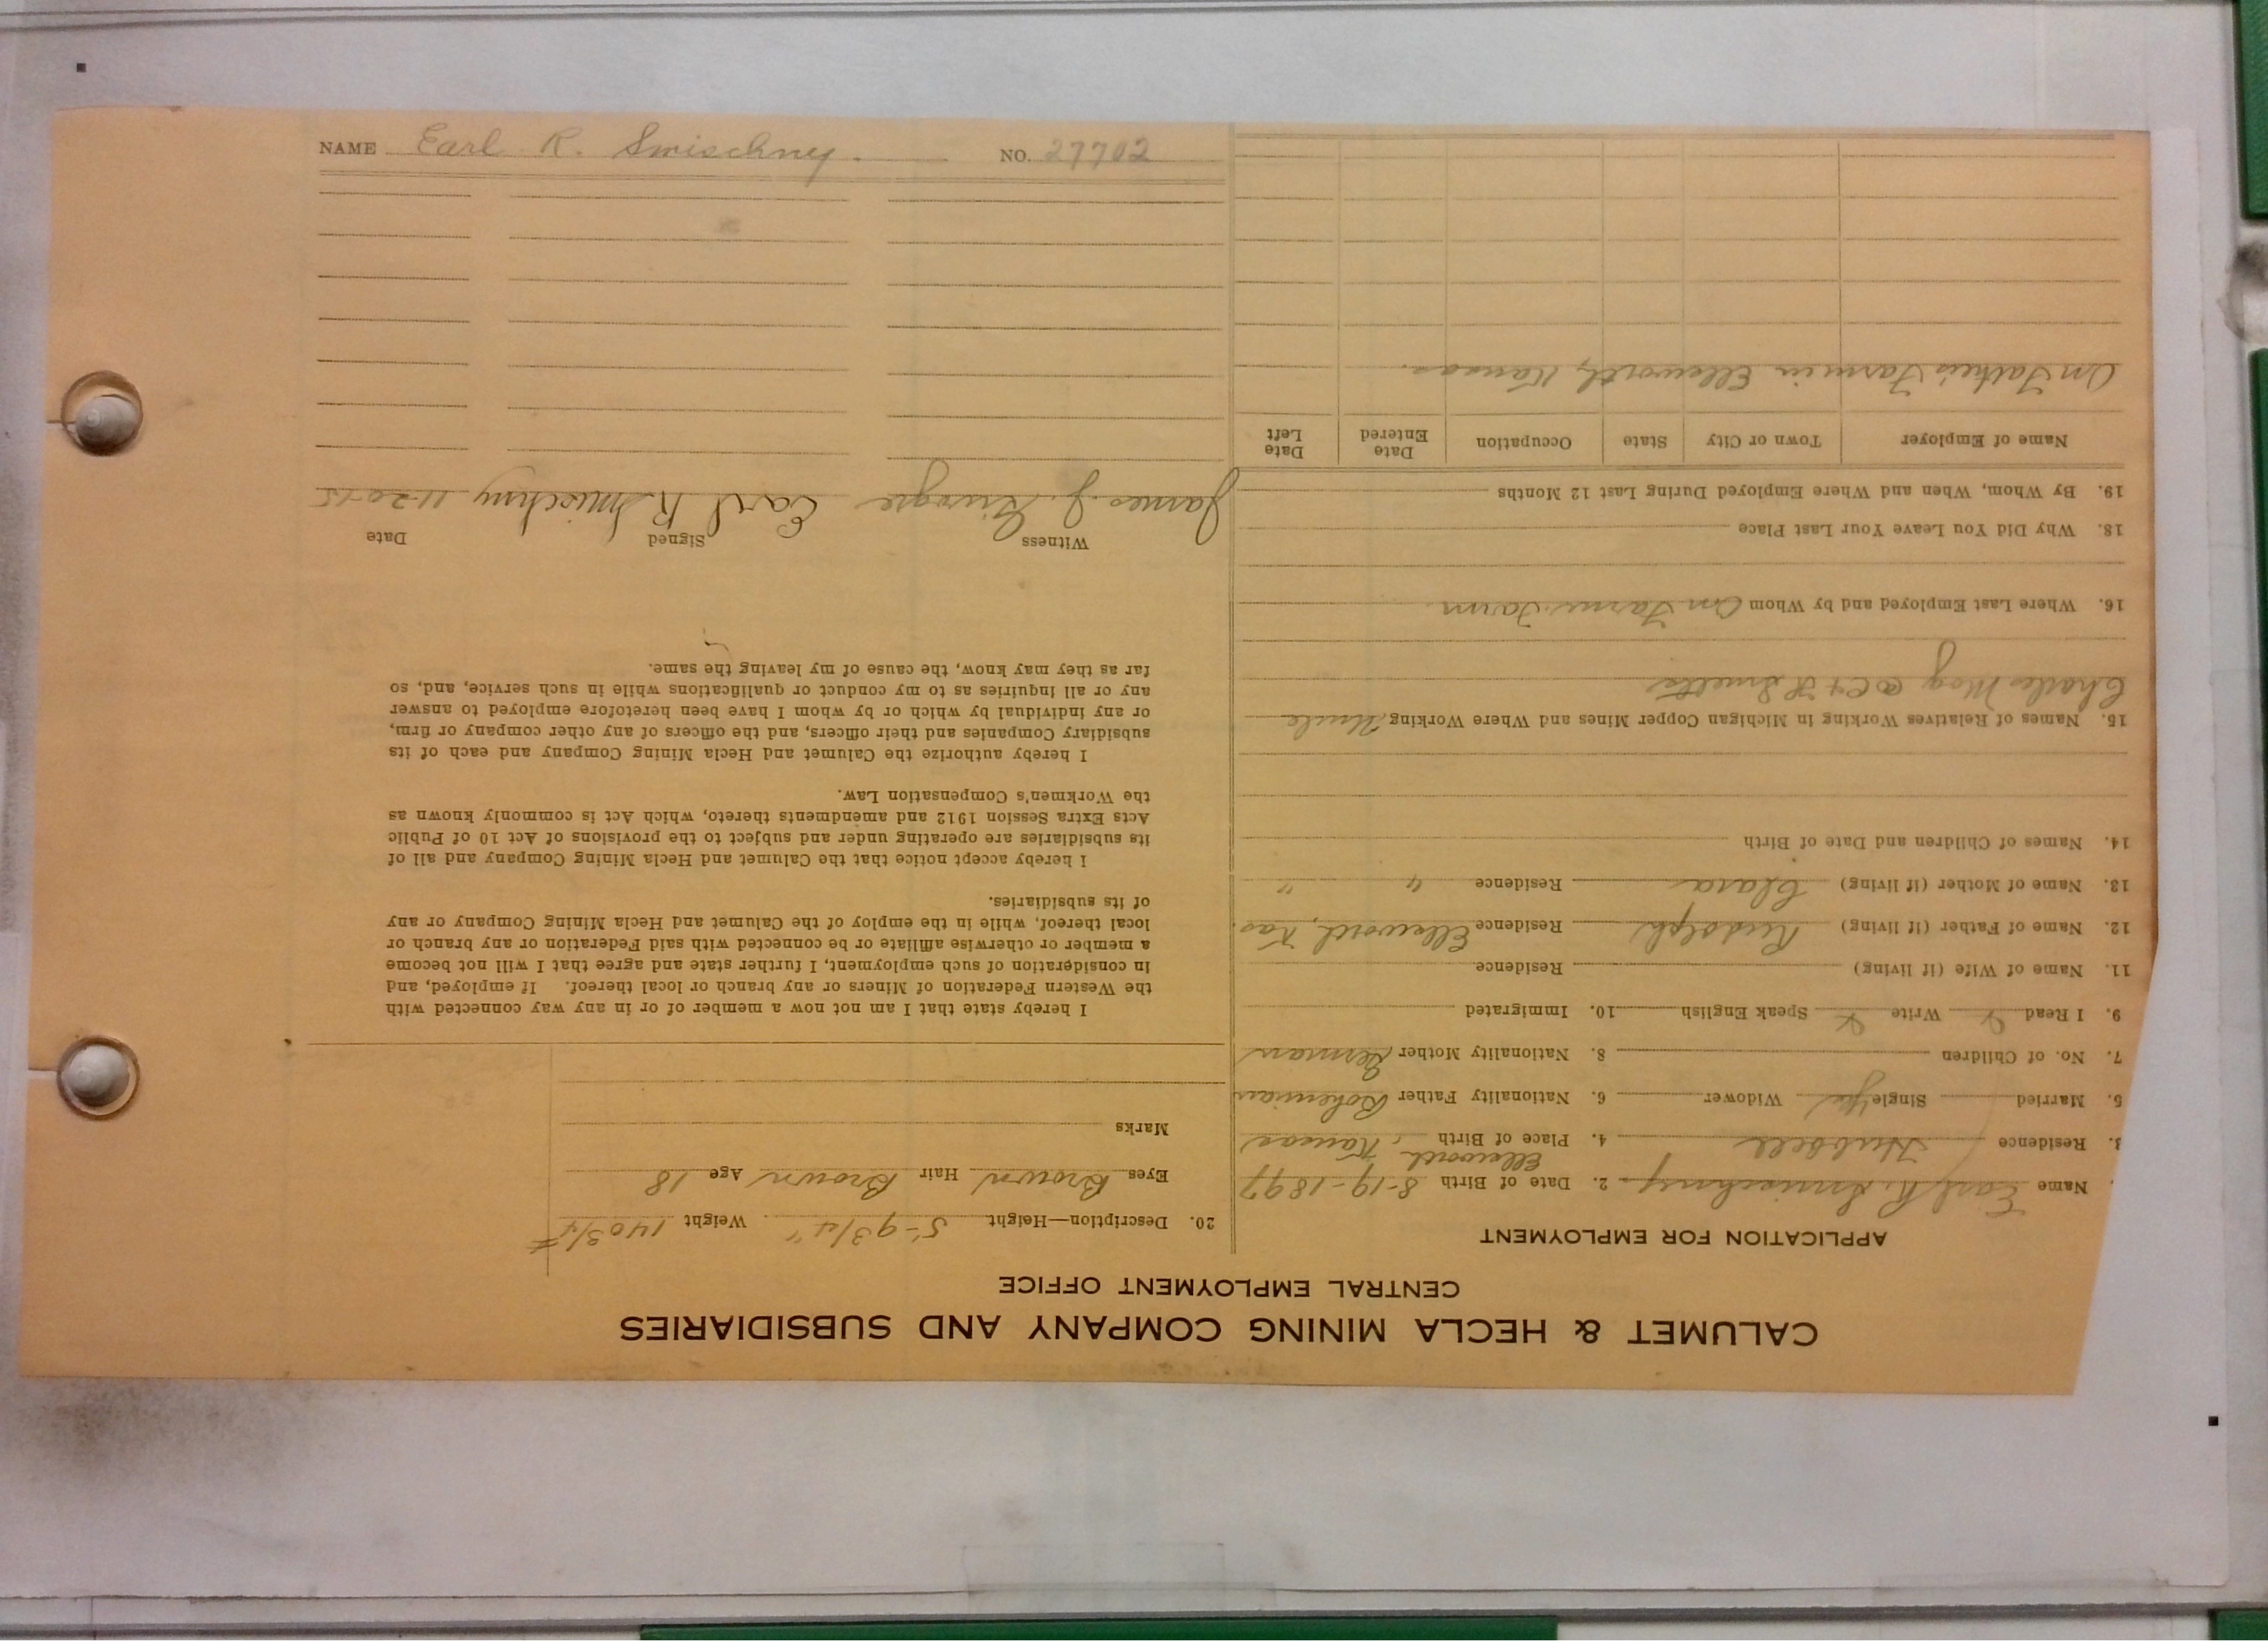 CALUMET & HECLA MINING COMPANY AND SUBSIDIARIES
CENTRAL EMPLOYMENT OFFICE
APPLICATION FOR EMPLOYMENT
Name Earl R. Smischny 2. Date of Birth 8-19-1897
3. Residence Hubbell 4. Place of Birth Ellsworth, Kansas
5. Married Single Yes Widower 6. Nationality Father Bohemian
7. No. of Children 8. Nationality Mother German
9. I Read Write Speak English 10. Immigrated
11. Name of Wife (if living) Residence
12. Name of Father (if living) Rudolph Residence Ellsworth, Kas.
13. Name of Mother (if living) Clara Residence " "
14. Names of Children and Date of Birth
15. Names of Relatives Working in Michigan Copper Mines and Where Working Uncle
Charles May @ C + H Smelts
16. Where Last Employed and by Whom On Farm
18. Why Did You Leave Your Last Place
19. By Whom, When and Where Employed During Last 12 Months
Name of Employer Town or City State Occupation Date Entered Date Left
On Father's Farm in Ellsworth, Kansas.
20. Description—Height 5'-9 3/4" Weight 140 3/4 #
Eyes Brown Hair Brown Age 18
Marks
I hereby state that I am not now a member of or in any way connected with
the Western Federation of Miners or any branch or local thereof. If employed, and
in consideration of such employment, I further state and agree that I will not become
a member or otherwise affiliate or be connected with said Federation or any branch or
local thereof, while in the employ of the Calumet and Hecla Mining Company or any
of its subsidiaries.
I hereby accept notice that the Calumet and Hecla Mining Company and all of
its subsidiaries are operating under and subject to the provisions of Act 10 of Public
Acts Extra Session 1912 and amendments thereto, which Act is commonly known as
the Workmen's Compensation Law.
I hereby authorize the Calumet and Hecla Mining Company and each of its
subsidiary Companies and their officers, and the officers of any other company or firm,
or any individual by which or by whom I have been heretofore employed to answer
any or all inquiries as to my conduct or qualifications while in such service, and, so
far as they may know, the cause of my leaving the same.
Witness Signed Date
James J. Earl R Smischny 11-20-15
NAME Earl R. Smischney. NO. 27702